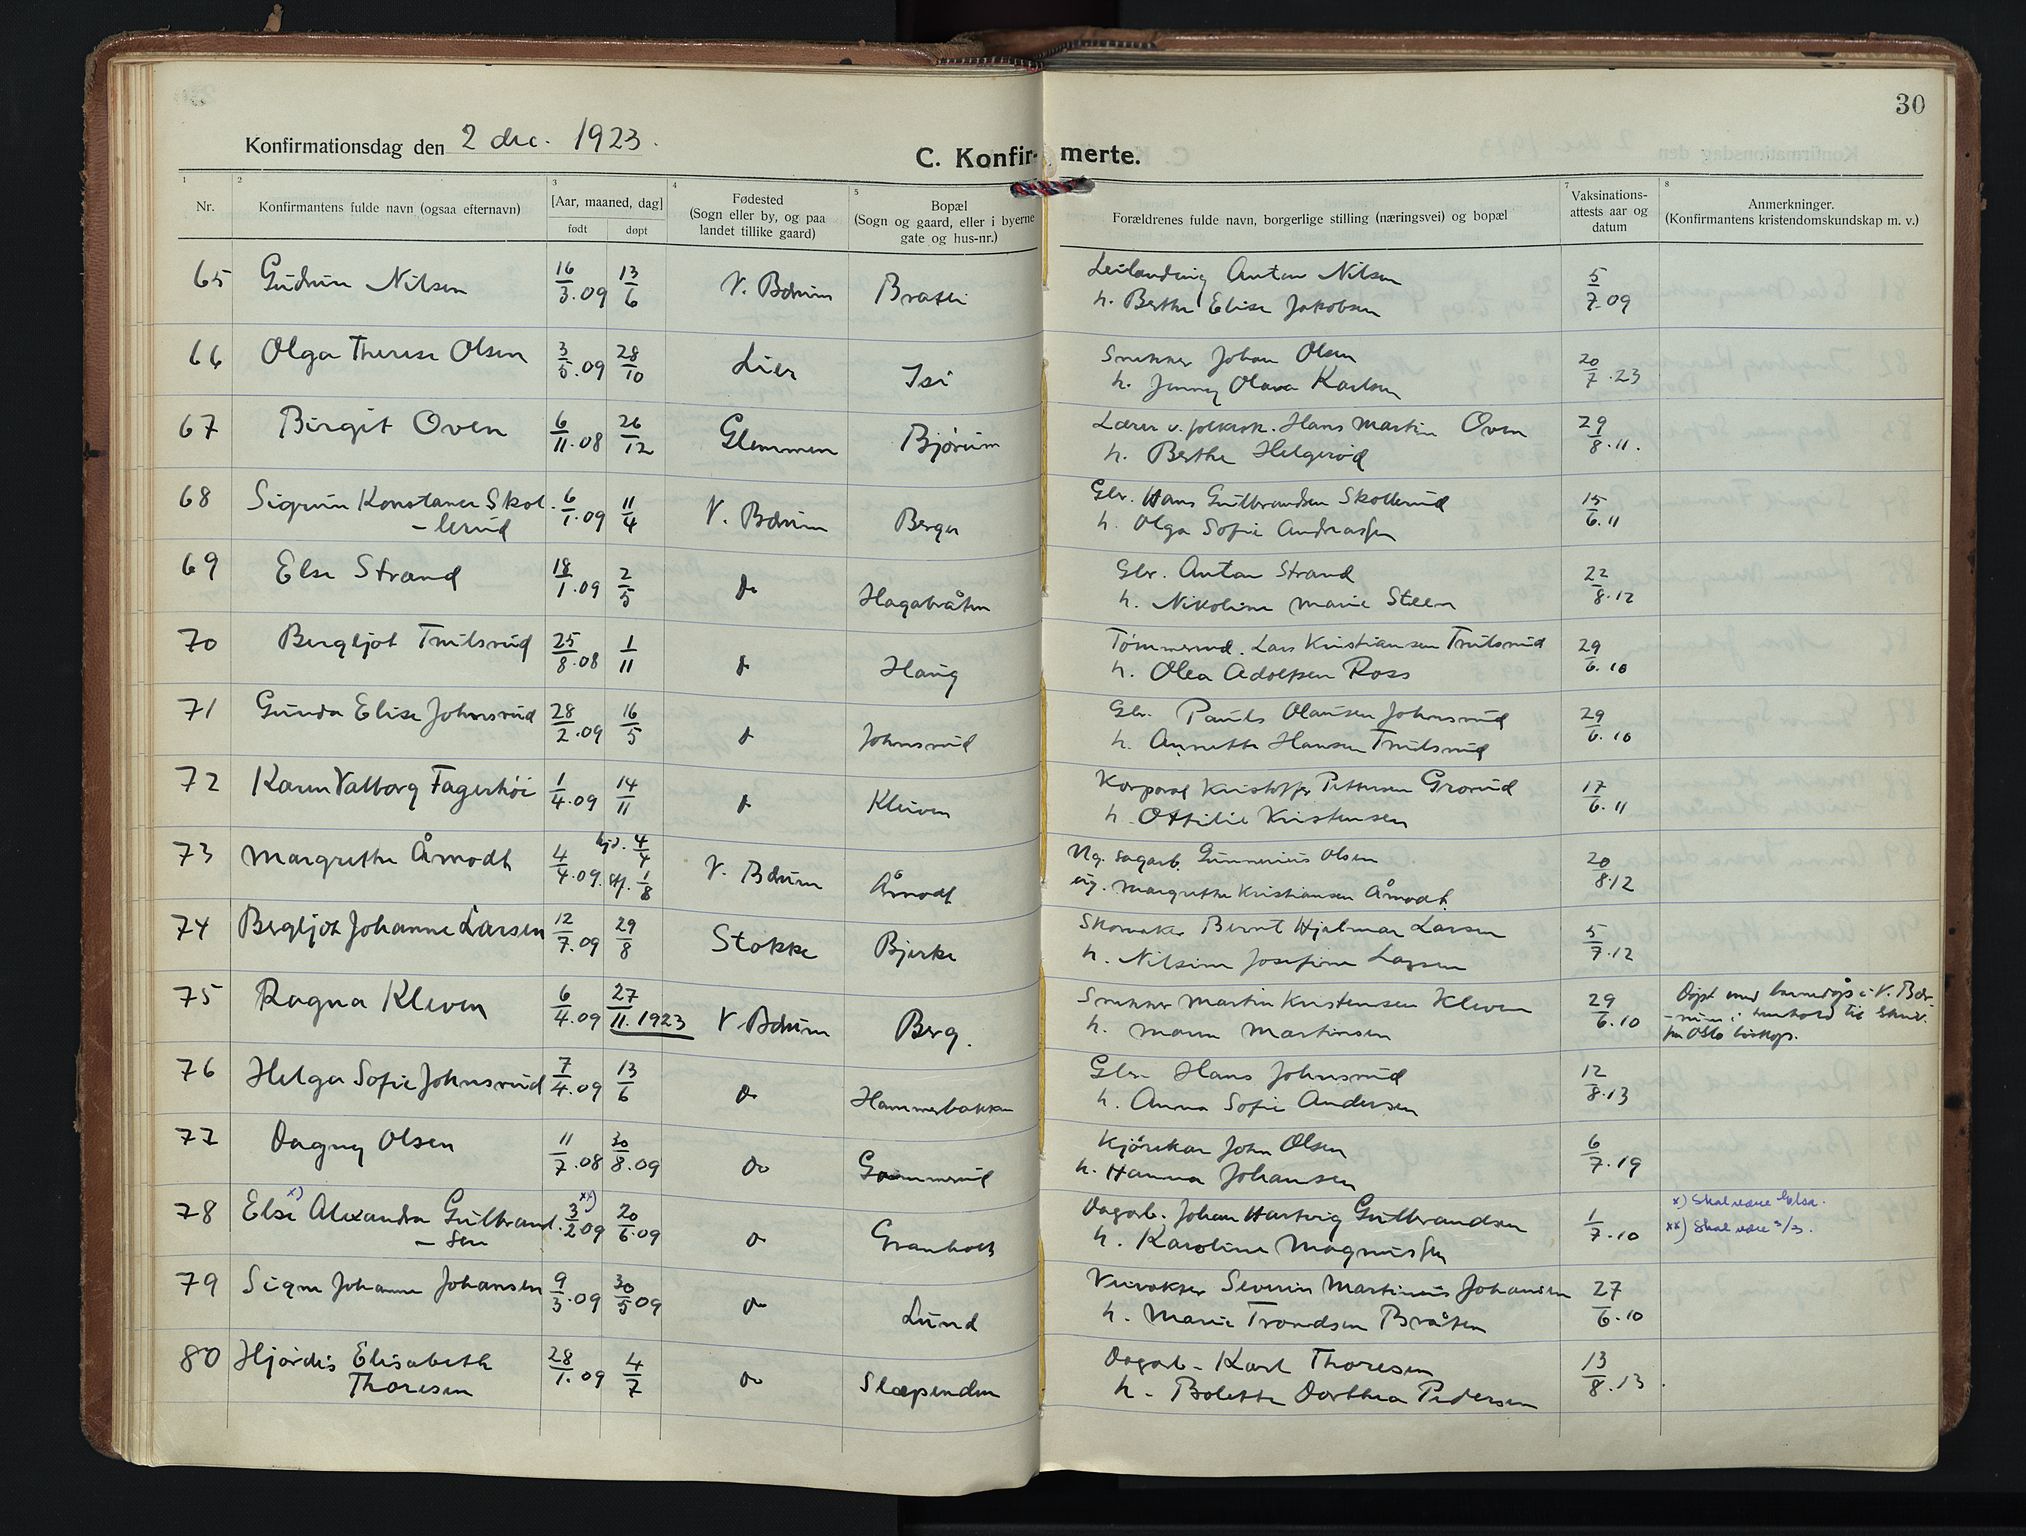 30
Konfirmationsdag den 2 dec. 1923.
C. Konfir- merte.
1 2 3 4 5 7 8
Nr. Konfirmantens fulde navn (ogsaa efternavn) [Aar, maaned, dag] født døpt Fødested (Sogn eller by, og paa landet tillike gaard) Bopæl (Sogn og gaard, eller i byerne gate og hus-nr.) Forældrenes fulde navn, borgerlige stilling (næringsvei) og bopæl Vaksinations-attests aar og datum Anmerkninger. (Konfirmantens kristendomskundskap m. v.)
65 Gudrun Nilsen 16/3.09 13/6 V. Bærum Anton Nilsen 5/7.09
h. Berthe Elise Jakobsen
66 Olga Therese Olsen 3/5.09 28/10 Lier Isi Snekker Johan Olsen 20/7.23
h. Jenny Olava Karlsen
67 Birgit Oven 6/11.08 26/12 Glemmen Bjørum Lærer v. folkesk. Hans Martin Oven 29/8.11.
h. Berthe Helgerød
68 Sigrun Konstance Skol- 6/1.09 11/4 V. Bærum Berger Gbr. Hans Gulbrandsen Skollerud 15/6.11
-lerud h. Olga Sofie Andreassen
69 Else Strand 18/1.09 2/5 do Hagabråten Gbr. Anton Strand 22/8.12
h. Nikoline Marie Steen
70 Bergljot Trulsrud 25/8.08 1/11 d Haug Tømmerm. Lars Kristiansen Trulsrud 29/6.10
h. Olea Adolfsen Ross
71 Gunda Elise Johnsrud 28/2.09 16/5 d Johnsrud Gbr. Pauls Olausen Johnsrud 29/6.10
h. Annette Hansen Trulsrud
72 Karen Valborg Fagerhøi 1/4.09 14/11 d Kleven Korporal Kristoffer Pettersen Grorud 17/6.11
h. Ottilie Kristensen
73 Margrethe Åmodt 4/4.09 hjd. 4/4 st. 1/8 V. Bærum Åmodt Ug. sagarb. Gunnerius Olsen 20/8.12
Margrethe Kristiansen Åmodt.
74 Bergljot Johanne Larsen 12/7.09 29/8 Stokke Bjerke Skomaker Bernt Hjalmar Larsen 5/7.12
h. Nilsine Josefine Larsen
75 Ragna Kleven 6/4.09 27/11.1923 V. Bærum Berg. Snekker Martin Kristensen Kleven 29/6.10 Døpt med barnedåp i V. Bæ-
h. Maren Martinsen -rum i henhold til skriv.
fra Oslo biskop.
76 Helga Sofie Johnsrud 7/4.09 13/6 do Hammerbakken Gbr. Hans Johnsrud 12/8.13
h. Anna Sofie Andersen
77 Dagny Olsen 11/7.08 30/8.09 do Gommerud Kjørekar John Olsen 6/7.19
h. Hanna Johansen
78 Else x) Alexandra Gulbrand- 3/2 xx) 09 20/6.09 do Granholt Dagarb. Johan Hartvig Gulbrandsen 1/7.10 x) Skal være Gelse.
-sen h. Karoline Magnussen xx) Skal være 3/3.
79 Signe Johanne Johansen 9/3.09 30/5 09 do Lund Severin Martinius Johansen 27/6.10
h. Marie Trondsen Bråten
80 Hjørdis Elisabeth 28/1.09 4/7 do Slæpenden Dagarb. Karl Thoresen 13/8.13.
Thoresen h. Bolette Dorthea Pedersen